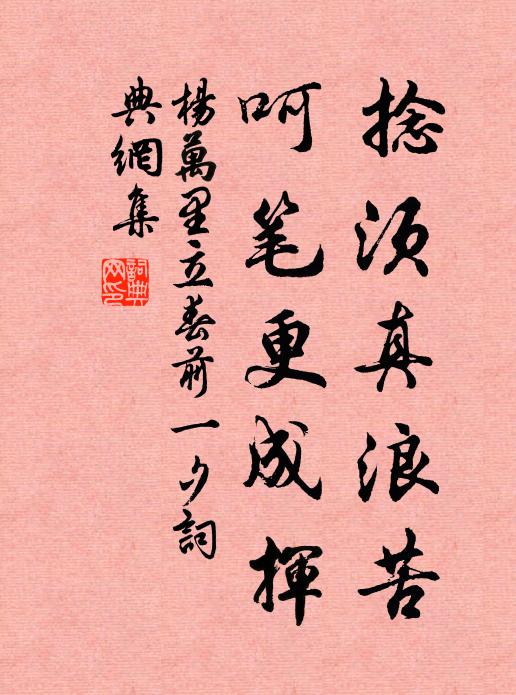 捻须真浪苦
呵笔更成挥
楊萬里立春前一夕詞
典網集
詞典網印